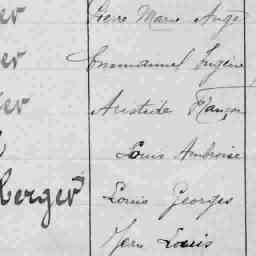 er Pierre Marie Ange
er Emmanuel Eugène
er Aristide Françoi
Louis Ambroise
Berger Louis Georges
Jean Louis